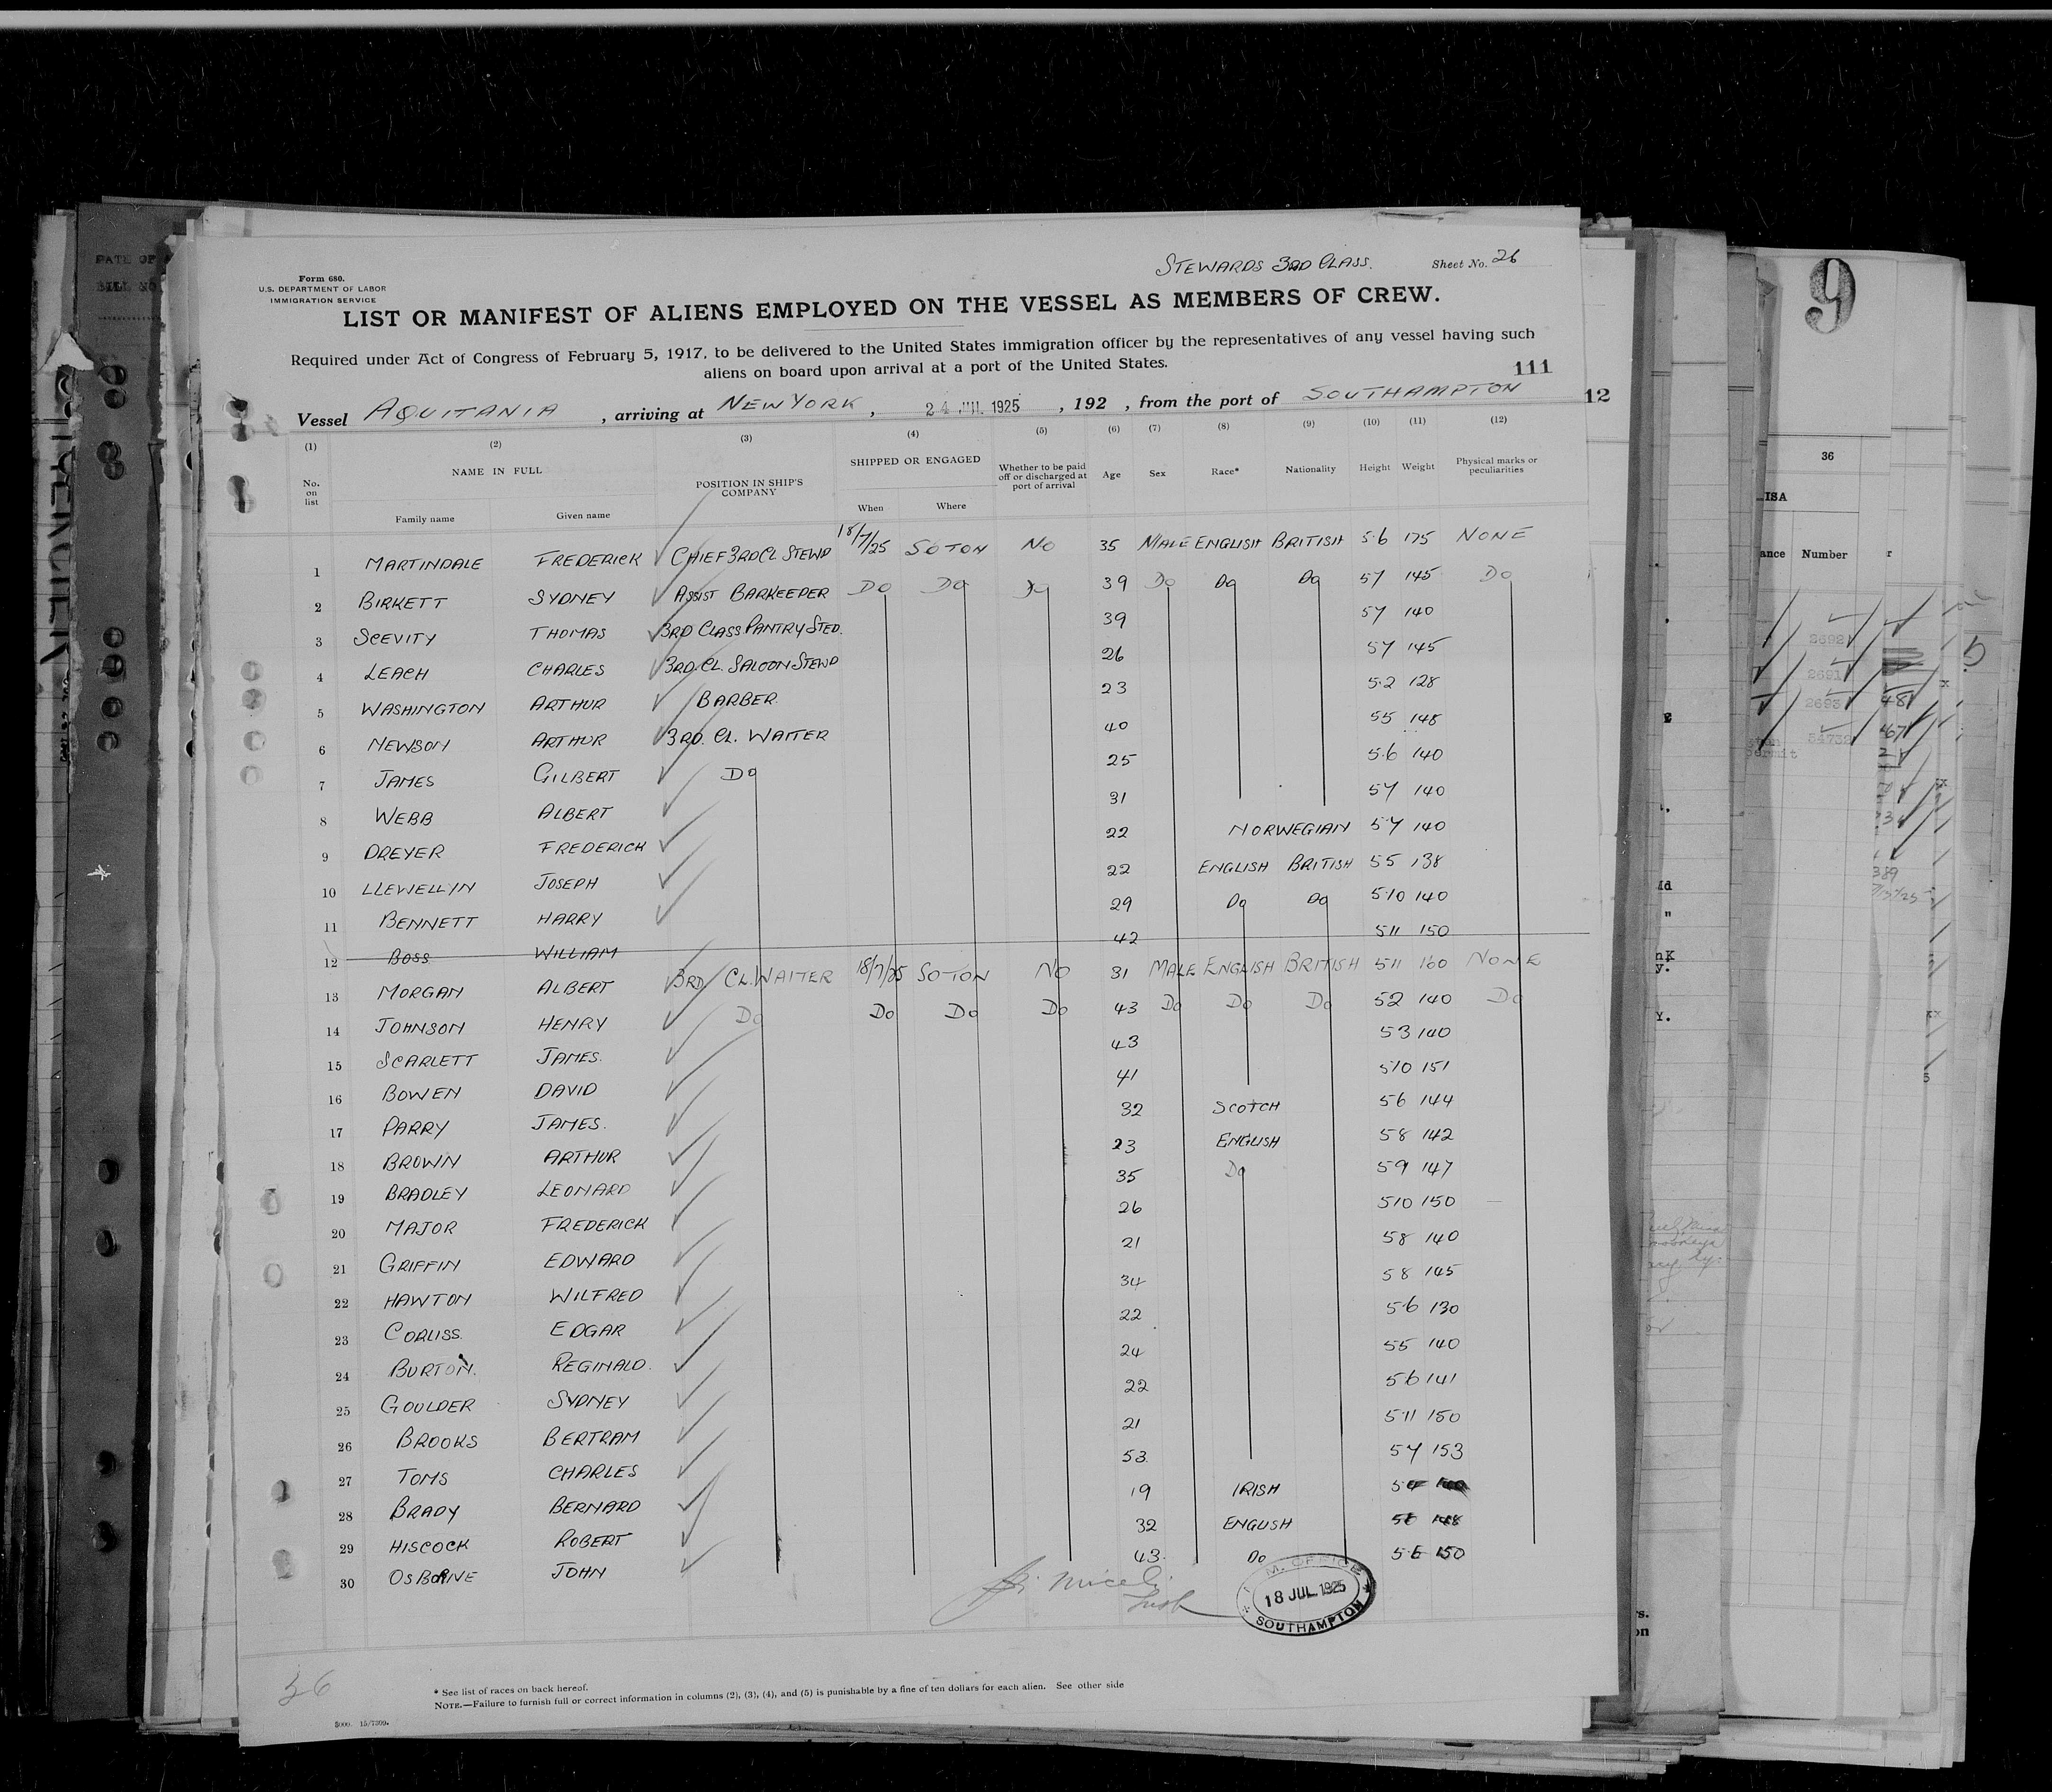 STEWARDS 3RD CLASS. Sheet No. 26
Form 680.
U.S. DEPARTMENT OF LABOR
IMMIGRATION SERVICE
LIST OR MANIFEST OF ALIENS EMPLOYED ON THE VESSEL AS MEMBERS OF CREW.
Required under Act of Congress of February 5, 1917, to be delivered to the United States immigration officer by the representatives of any vessel having such
aliens on board upon arrival at a port of the United States.
111
Vessel AQUITANIA, arriving at NEW YORK, 24 JUL 1925, 192 , from the port of SOUTHAMPTON
12
(1) (2) (3) (4) (5) (6) (7) (8) (9) (10) (11) (12)
No. on list NAME IN FULL Family name Given name POSITION IN SHIP'S COMPANY SHIPPED OR ENGAGED When Where Whether to be paid off or discharged at port of arrival Age Sex Race* Nationality Height Weight Physical marks or peculiarities
1 MARTINDALE FREDERICK CHIEF 3RD CL STEWD 18/7/25 SOTON NO 35 MALE ENGLISH BRITISH 5.6 175 NONE
2 BIRKETT SYDNEY ASSIST BARKEEPER DO DO DO 39 DO DO DO 57 145 DO
3 SCEVITY THOMAS 3RD CLASS PANTRY STED. 39 57 140
4 LEACH CHARLES 3RD CL. SALOON STEWD 26 57 145
5 WASHINGTON ARTHUR BARBER. 23 5.2 128
6 NEWSON ARTHUR 3RD. CL. WAITER 40 55 148
7 JAMES GILBERT DO 25 5.6 140
8 WEBB ALBERT 31 57 140
9 DREYER FREDERICK 22 NORWEGIAN 57 140
10 LLEWELLYN JOSEPH 22 ENGLISH BRITISH 55 138
11 BENNETT HARRY 29 DO DO 5.10 140
12 BOSS WILLIAM 42 511 150
13 MORGAN ALBERT 3RD CL. WAITER 18/7/25 SOTON NO 31 MALE ENGLISH BRITISH 511 160 NONE
14 JOHNSON HENRY DO DO DO DO 43 DO DO DO 52 140 DO
15 SCARLETT JAMES. 43 53 140
16 BOWEN DAVID 41 510 151
17 PARRY JAMES. 32 SCOTCH 56 144
18 BROWN ARTHUR 23 ENGLISH 58 142
19 BRADLEY LEONARD 35 DO 59 147
20 MAJOR FREDERICK 26 510 150
21 GRIFFIN EDWARD 21 58 140
22 HAWTON WILFRED 34 58 145
23 CORLISS. EDGAR 22 5.6 130
24 BURTON. REGINALD. 24 55 140
25 GOULDER SYDNEY 22 56 141
26 BROOKS BERTRAM 21 511 150
27 TOMS CHARLES 53. 57 153
28 BRADY BERNARD 19 IRISH
29 HISCOCK ROBERT 32 ENGLISH
30 OSBORNE JOHN 43. DO 150
18 JUL. 1925
SOUTHAMPTON
36
* See list of races on back hereof.
NOTE.—Failure to furnish full or correct information in columns (2), (3), (4), and (5) is punishable by a fine of ten dollars for each alien. See other side
9
36
Number
2692
2691
2693
54732